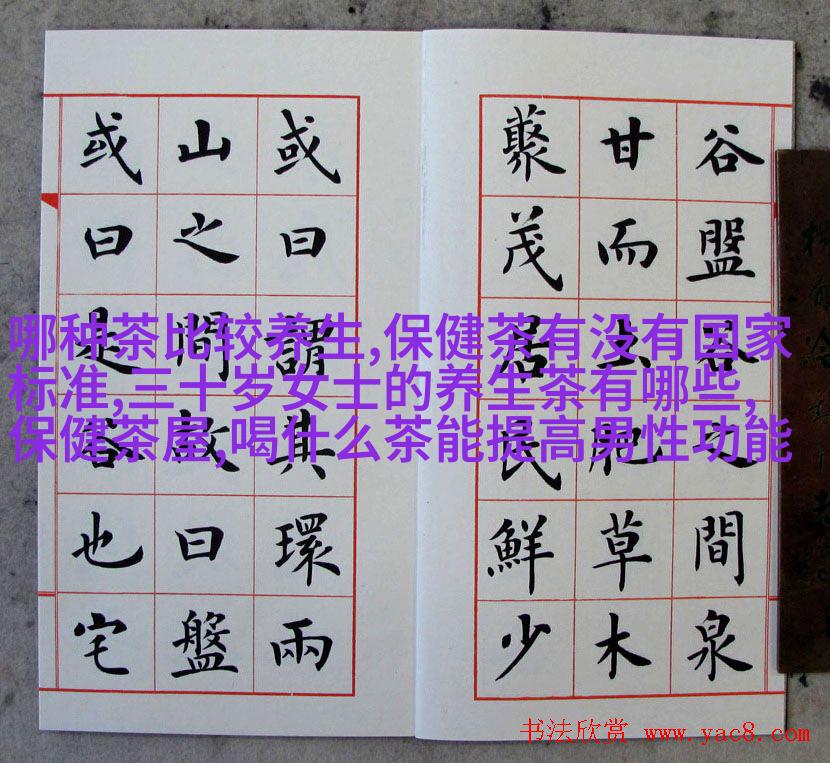 谷盤谷之間泉
甘而土肥草木
藂茂居民鮮少
或曰謂其環兩
山之間故曰盤
或曰是谷也宅
哪种茶比较养生,保健茶有没有国家
标准,三十岁女士的养生茶有哪些,
保健茶屋,喝什么茶能提高男性功能
书法欣赏 www.yac8.com